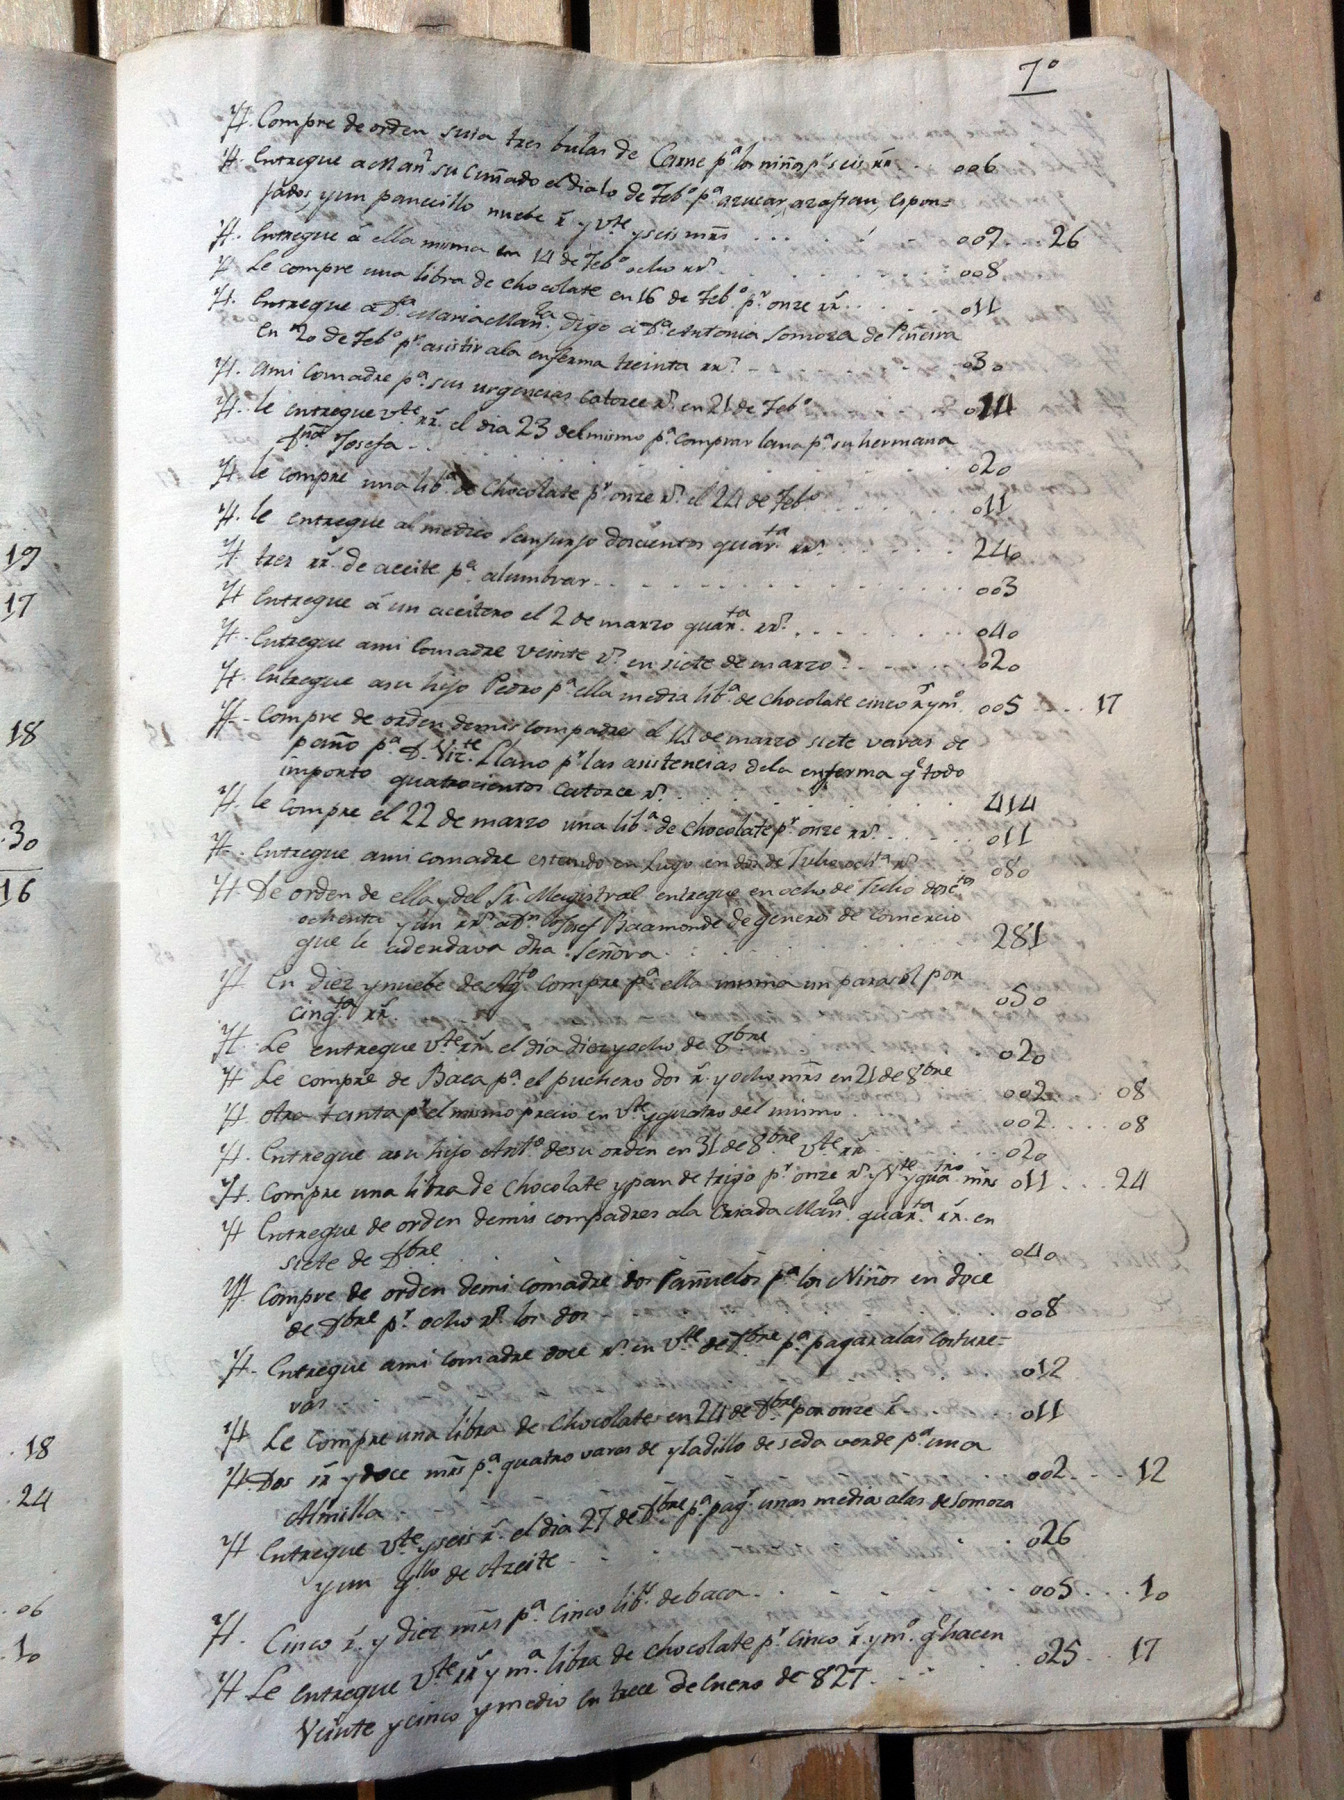 7º
Yt. Compre de orden suia tres bulas de Carne pª los niños pr seis rrs . 006
Yt. Entregue a Manl su cuñado el dia 10 de Febº pª azucar, azafran, espon=
jados, y un panecillo nuebe rs y vte y seis mrs . . . . . 009 . . 26
Yt. Entregue á ella misma en 14 de Febº ocho rrs . . . . . 008
Yt Le compre una libra de chocolate en 16 de Febº pr onze rrs . . . . . 011
Yt. Entregue a Dª Maria Manla, digo a Dª Antonia Somoza de Piñeira
en 20 de Febº pr asistir ala enferma treinta rrs . . . 030
Yt. Ami Comadre pª sus urgencias Catorce rs en 21 de Febº . . . 014
Yt. le entregue vte rrs el dia 23 del mismo pª comprar lana pª su hermana
Dña Josefa . . . . . . . . 020
Yt. le compre una libª de chocolate pr onze rs el 24 de Febº . . . . . 011
Yt. le entregue al medico Sanjurjo doscientos quarta rrs . . . . . 240
Yt tres rrs de aceite pª alumbrar . . . . . . . . 003
Yt Entregue á un aceitero el 2 de marzo quarta rrs . . . . . 040
Yt. Entregue ami Comadre veinte rs en siete de marzo . . . . 020
Yt. Entregue asu hijo Pedro pª ella media libª de chocolate cinco rs y mº 005 . . . 17
Yt. Compre de orden demis compadres el 14 de marzo siete varas de
paño pª Dn Vizte Llano pr las asistencias dela enferma qe todo
importo quatrocientos catorce rs . . . . . . . 414
Yt. le compre el 22 de marzo una libª de chocolate pr onze rrs . . . . 011
Yt. Entregue ami comadre estando en Lugo en dos de Julio ochta rs . . 080
Yt De orden de ella y del Sr Magistral entregue en ocho de Julio dosctos
ochenta y un rrs a Dn Josef Baamonde de generos de comercio
que le adeudava dha Señora . . . . . . 281
Yt En diez y nuebe de Agto compre pª ella misma un parasol por
cinqta rrs . . 050
Yt. Le entregue vte rrs el dia diez y ocho de 8bre . . 020
Yt Le compre de Baca pª el puchero dos rs y ocho mrs en 21 de 8bre 002 . . . 08
Yt otra tanta pr el mismo precio en vte y quatro del mismo . . . 002 . . . 08
Yt. Entregue asu hijo Antº desu orden en 31 de 8bre vte rrs . . . . 020
Yt. Compre una libra de chocolate y pan de trigo pr onze rs y vte y quatro mrs 011 . . . 24
Yt Entregue de orden demis compadres ala Criada Manla quarta rrs en
siete de Dbre . . 040
Yt. Compre de orden demi comadre dos Pañuelos pª los Niños en doce
de Dbre pr ocho rs los dos . . . . 008
Yt. Entregue ami Comadre doce rs en vte de Dbre pª pagar alas Costure=
ras . . . . 012
Yt Le compre una libra de chocolate en 24 de Dbre por onze rs . . . . 011
Yt. Dos rrs y doce mrs pª quatro varas de yladillo de seda verde pª una
Almilla . . . . 002 . . . 12
Yt Entregue vte y seis rs el dia 27 de Dbre pª pagr unas medias alas de Somoza
y un qllo de Azeite . . . . 026
Yt. Cinco rs y diez mrs pª Cinco libs de baca . . . . . . 005 . . . 10
Yt Le entregue vte rrs y mª libra de chocolate pr Cinco rs y mº qe hacen
Veinte y cinco y medio en trece de Enero de 827 . . . . 025 . . 17
19
17
18
30
16
18
24
06
10